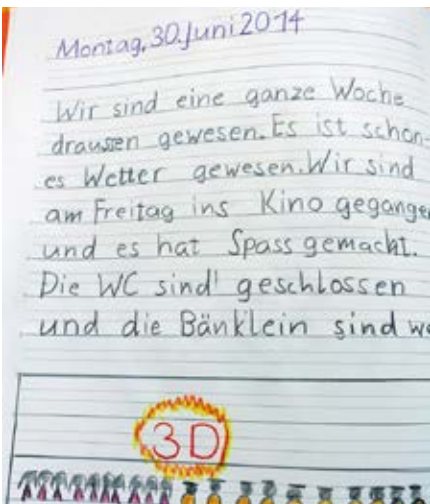 Montag, 30. Juni 2014
Wir sind eine ganze Woche
draussen gewesen. Es ist schön-
es Wetter gewesen. Wir sind
am Freitag ins Kino gegangen
und es hat Spass gemacht.
Die WC sind geschlossen
und die Bänklein sind
3D